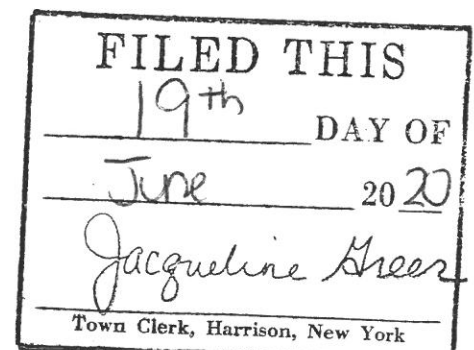 FILED THIS
19th DAY OF
June 2020
Jacqueline Greer
Town Clerk, Harrison, New York